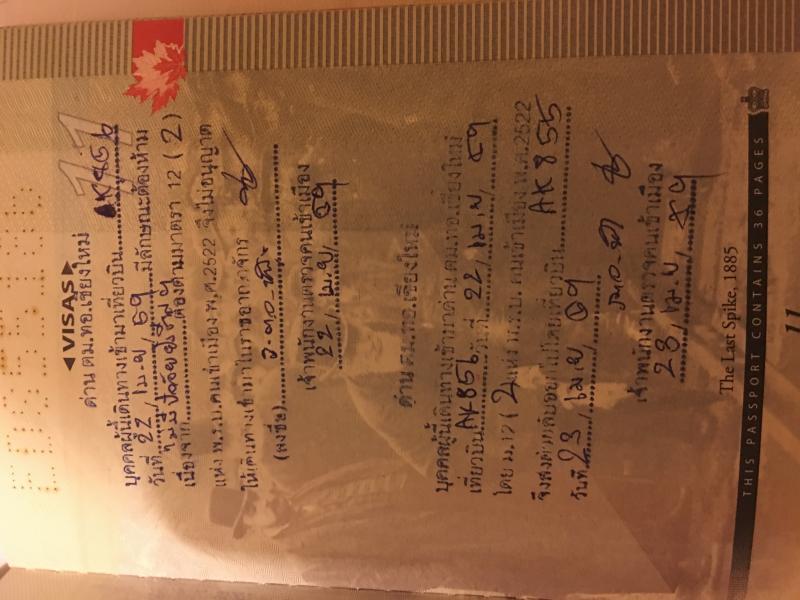 ◄VISAS►
ด่าน ตม.ทอ.เชียงใหม่
บุคคลผู้นี้เดินทางเข้ามาเที่ยวบิน AK856
วันที่ 22 / เม.ย / 59 มีลักษณะต้องห้าม
เนื่องจาก ไม่มีปัจจัยยังชีพฯ ต้องตามมาตรา 12 (2)
แห่ง พ.ร.บ.คนเข้าเมือง พ.ศ.2522 จึงไม่อนุญาต
ให้เดินทางเข้ามาในราชอาณาจักร
(ลงชื่อ)
เจ้าพนักงานตรวจคนเข้าเมือง
22 / เม.ย / 59
ด่าน ตม.ทอ.เชียงใหม่
บุคคลผู้นี้เดินทางเข้ามาด่าน ตม.ทอ.เชียงใหม่
เที่ยวบิน AK856 วันที่ 22 / เม.ย / 59
โดย ม.12 ( 2 ) แห่ง พ.ร.บ. คนเข้าเมือง พ.ศ.2522
จึงส่งตัวกลับออกไปโดยเที่ยวบิน AK855
วันที่ 23 / เม.ย / 59
เจ้าพนักงานตรวจคนเข้าเมือง
23 / เม.ย / 59
The Last Spike, 1885
THIS PASSPORT CONTAINS 36 PAGES
11